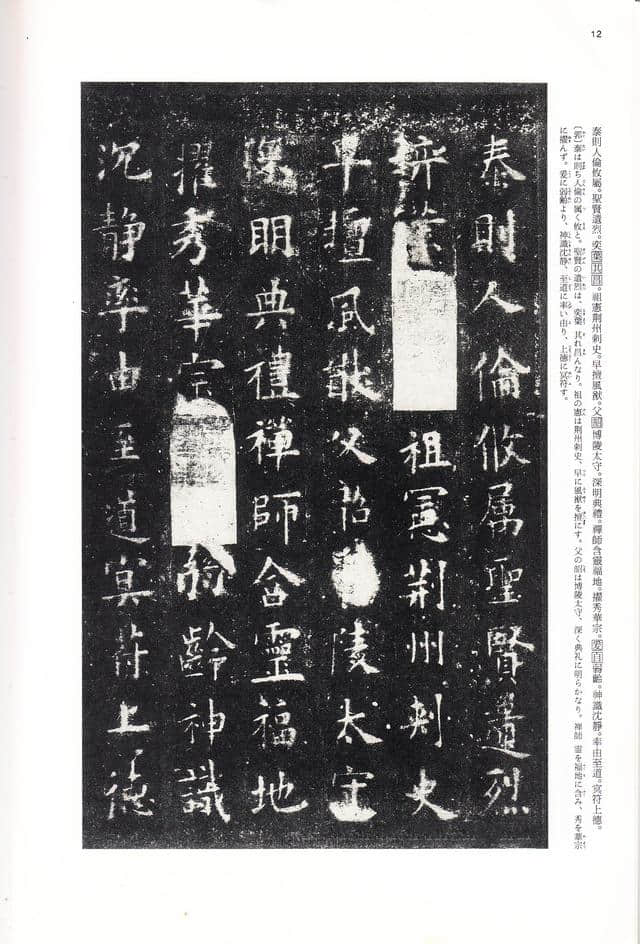 12
泰則人倫攸屬。聖賢遺烈。奕葉其昌。祖憲荆州刺史。早擅風猷。父昭博陵太守。深明典禮。禪師含靈福地。擢秀華宗。爰自弱齡。神識沈靜。率由至道。冥符上德。
〔郭〕泰は則ち人倫の属く攸と。聖賢の遺烈は、奕葉 其れ昌んなり。祖の憲は荆州刺史、早に風猷を擅にす。父の昭は博陵太守、深く典礼に明らかなり。禅師 霊を福地に含み、秀を華宗
に擢んず。爰に弱齢より、神識沈静、至道に率い由り、上徳に冥符す。
泰則人倫攸属聖賢遺烈
弈葉祖憲荊州刺史
早擅風猷父昭陵太守
深明典禮禪師含靈福地
擢秀華宗弱齡神識
沉静率由至道冥符上德